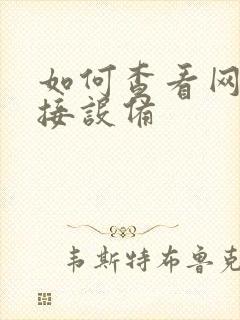 如何查看网
接設備
韦斯特布鲁克